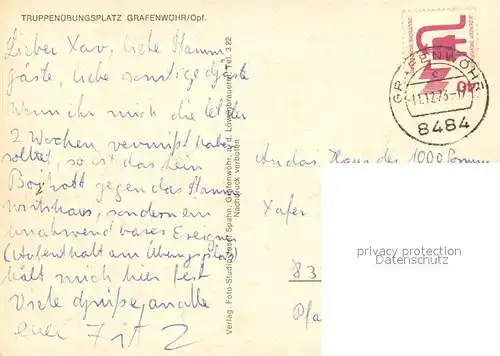 TRUPPENÜBUNGSPLATZ GRAFENWÖHR/Opf.
Lieber Xav, liebe Stamm
gäste, liebe sonstige gäste
Wenn ihr mich die letzten
2 Wochen vermißt haben
solltet, so ist das kein
Boykott gegen das Stamm
wirtshaus, sondern ein
unabwendbares Ereignis
(Aufenthalt am Übungsplatz)
hält mich hier fest
Viele Grüße, an alle
euer
Verlag: Foto-Studio Josef Spahn, Grafenwöhr, a. d. Löwenbrauerei, Tel. 3 22
Nachdruck verboten
GRAFENWÖHR
c
11.12.73-17
8484
40
An das Haus des 1000
Xafer
privacy protection
Datenschutz
83
Pfa